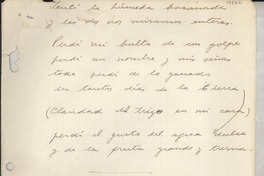 sentí la húmeda bocanada
y los dos nos miramos enteros.
Perdí mi bulto de un golpe
perdí mi nombre y mis señas
todo perdí de lo ganado
en tantos días de la Tierra
(Claridad del Trigo en mi cara)
perdí el gusto del agua dulce
y de la fruta grande y tierna.